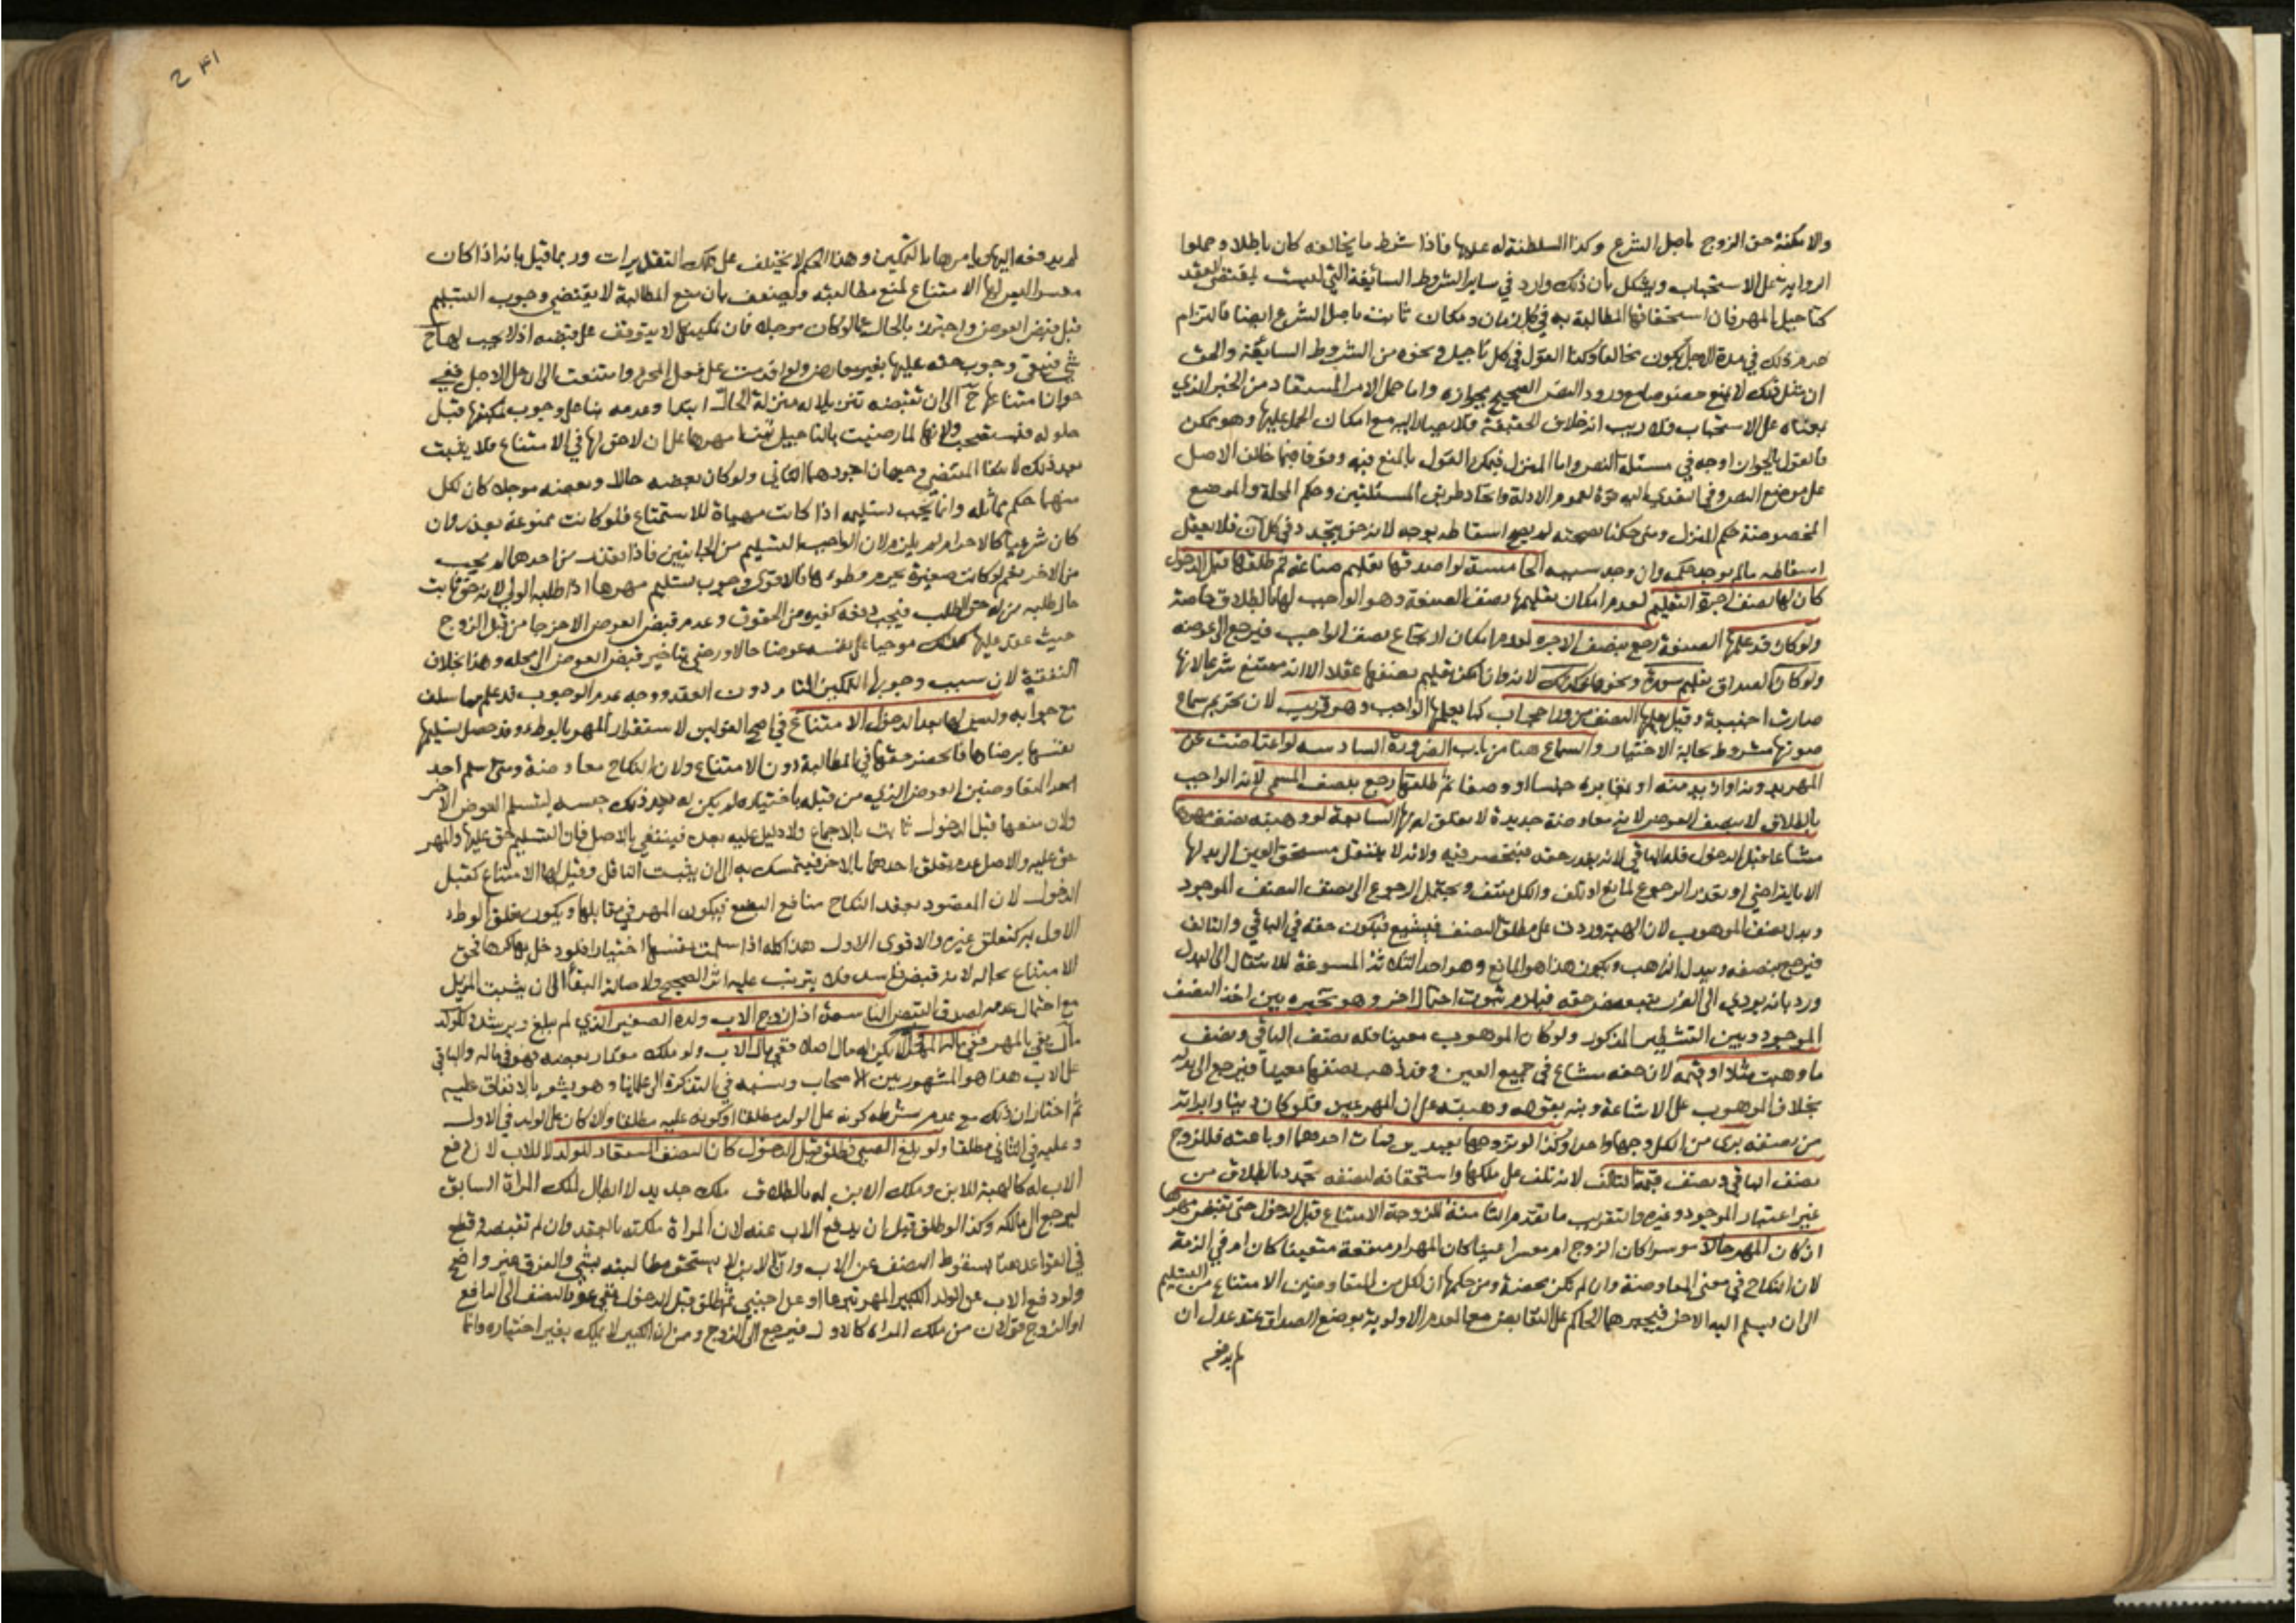 والامكنة حق الزوج باصل الشرع وكذا السلطنة له عليها فاذا شرط ما يخالفه كان باطلا وحملوا
الرواية على الاستحباب ويشكل بأن ذلك وارد في ساير الشروط السائغة التي ليست بمقتضى العقد
كتاجيل المهر فان استحقاقها المطالبة به في كل زمان ومكان ثابت باصل الشرع ايضا فالتزام
عدم ذلك في مدة الاجل يكون مخالفا وكذا القول في كل تاجيل ونحوه من الشروط السايغة والحق
ان مثل ذلك لا يمنع خصوصا مع ورود النص الصحيح بجوازه واما حمل الامر المستفاد من الخبر الذي
بمعناه على الاستحباب فلا ريب انه خلاف الحقيقة فلا يصار اليه مع امكان الحمل عليها وهو ممكن
فالقول بالجواز اوجه في مسئلة النص واما المنزل فيمكن القول بالمنع فيه وقوفا فيما خالف الاصل
على موضع النص وفي التعدي اليه قوة لعموم الادلة واتحاد طريق المسئلتين وحكم المحلة والموضع
المخصوصة حكم المنزل ومتى حكمنا بصحته لم يصح اسقاطه بوجه لانه حق يتجدد في كل آن فلا يعقل
اسقاطه ما لم يوجد حكمه وان وجد سببه الخامسة لو اصدقها تعليم صناعة ثم طلقها قبل الدخول
كان لها نصف اجرة التعليم لعدم امكان تعليمها نصف الصنعة وهو الواجب لها بالطلاق خاصة
ولو كان قد علمها الصنعة رجع بنصف الاجرة لعدم امكان ارتجاع نصف الواجب فيرجع الى عوضه
ولو كان الصداق تعليم سورة ونحوها فكذلك لانه وان امكن تعليم نصفها عقلا الا انه ممتنع شرعا لانها
صارت اجنبية وقيل يعلمها النصف من وراء حجاب كما يعلمها الواجب وهو قريب لان تحريم سماع
صوتها مشروط بحالة الاختيار والسماع هنا من باب الضرورة السادسة لو اعتاضت عن
المهر بدونه او ازيد منه او بمغايره جنسا او وصفا ثم طلقها رجع بنصف المسمى لانه الواجب
بالطلاق لا بنصف العوض لانه معاوضة جديدة لا تعلق له بها السابعة لو وهبته نصف مهرها
مشاعا قبل الدخول فله الباقي لانه بقدر حقه فينحصر فيه ولانه لا ينتقل مستحق العين الى بدلها
الا بالتراضي او تعذر الرجوع لمانع او تلف والكل منتف ويحتمل الرجوع الى نصف النصف الموجود
وبدل نصف الموهوب لان الهبة وردت على مطلق النصف فيشيع فيكون حقه في الباقي والتالف
فيرجع بنصفه وببدل الذاهب ويكون هذا هو المانع وهو احد الثلاثة المسوغة للانتقال الى البدل
ورد بانه يؤدي الى الضرر بتبعيض حقه فيلزم ثبوت احتمال اخر وهو تخيره بين اخذ النصف
الموجود وبين التشطير المذكور ولو كان الموهوب معينا فله نصف الباقي ونصف
ما وهبت مثلا او قيمة لان حقه مشاع في جميع العين وقد ذهب نصفها معينا فيرجع الى بدله
بخلاف الموهوب على الاشاعة ونبه بقوله وهبته على ان المهر عين فلو كان دينا وابرأته
من نصفه برئ من الكل وجها واحدا وكذا لو تزوجها بعبدين فمات احدهما او باعته فللزوج
نصف الباقي ونصف قيمة التالف لانه تلف على ملكها واستحقاقه لنصفه تجدد بالطلاق من
غير اعتبار الموجود وغيره والتقريب ما تقدم الثامنة للزوجة الامتناع قبل الدخول حتى تقبض مهرها
ان كان المهر حالا موسرا كان الزوج ام معسرا عينا كان المهر ام منفعة متعينا كان ام في الذمة
لان النكاح في معنى المعاوضة وان لم تكن محضة ومن حكمها ان لكل من المتعاوضين الامتناع من التسليم
الى ان يسلم اليه الاخر فيجبرهما الحاكم على التقابض معا لعدم الاولوية بوضع الصداق عند عدل ان
لم يدفعه
241
لم يدفعه اليها ويامرها بالتمكين وهذا الحكم لا يختلف على تلك التقديرات وربما قيل بانه اذا كان
معسرا ليس لها الامتناع لمنع مطالبته ويضعف بان منع المطالبة لا يقتضي وجوب التسليم
قبل قبض العوض واحترز بالحال عما لو كان موجلا فان تمكينها لا يتوقف على قبضه اذ لا يجب لها ح
شيء فيبقى وجوب حقه عليها بغير معارض ولو اقدمت على فعل المحرم وامتنعت الى ان حل الاجل ففي
جواز امتناعها ح الى ان تقبضه تنزيلا له منزلة الحال ابتدا وعدمه بناء على وجوب تمكينها قبل
حلوله فيستصحب ولانها لما رضيت بالتاجيل بنت امرها على ان لا حق لها في الامتناع فلا يثبت
بعد ذلك لانتفا المقتضي وجهان اجودهما الثاني ولو كان بعضه حالا وبعضه موجلا كان لكل
منهما حكم مماثله وانما يجب تسليمه اذا كانت مهياة للاستمتاع فلو كانت ممنوعة بعذر وان
كان شرعيا كالاحرام لم يلزم لان الواجب التسليم من الجانبين فاذا تعذر من احدهما لم يجب
من الاخر نعم لو كانت صغيرة يحرم وطوءها فالاقوى وجوب تسليم مهرها اذا طلبه الولي لانه حق ثابت
حال طلبه من له حق الطلب فيجب دفعه كغيره من الحقوق وعدم قبض العوض الاخر جا من قبل الزوج
حيث عقد عليها كذلك موجبا على نفسه عوضا حالا ورضي بتاخير قبض العوض الى محله وهذا بخلاف
النفقة لان سبب وجوبها التمكين التام دون العقد ووجه عدم الوجوب قد علم مما سلف
مع جوابه وليس لها بعد الدخول الامتناع في اصح القولين لاستقرار المهر بالوطء وقد حصل تسليمها
نفسها برضاها فانحصر حقها في المطالبة دون الامتناع ولان النكاح معاوضة ومتى سلم احد
المتعاوضين العوض الذي من قبله باختياره لم يكن له بعد ذلك حبسه ليتسلم العوض الاخر
ولان منعها قبل الدخول ثابت بالاجماع ولا دليل عليه بعده فينتفي بالاصل فان التسليم حق عليها والمهر
حق عليه والاصل عدم تعلق احدهما بالاخر فيتمسك به الى ان يثبت الناقل وقيل لها الامتناع كقبل
الدخول لان المقصود بعقد النكاح منافع البضع فيكون المهر في مقابلها ويكون تعلق الوطء
الاول به كتعلق غيره والاقوى الاول هذا كله اذا سلمت نفسها اختيارا فلو دخل بها كرها فحق
الامتناع بحاله لانه قبض فاسد فلا يترتب عليه اثر الصحيح ولاصالة البقاء الى ان يثبت المزيل
مع احتمال عدمه لصدق القبض التاسعة اذا زوج الاب ولده الصغير الذي لم يبلغ ويرشد وللولد
مال يفي بالمهر ففي ماله المهر وان لم يكن له مال اصلا ففي مال الاب ولو ملك مقدار بعضه فهو في ماله والباقي
على الاب هذا هو المشهور بين الاصحاب ونسبه في التذكرة الى علمائنا وهو يشعر بالاتفاق عليه
ثم اختار ان ذلك مع عدم شرطه كونه على الولد مطلقا او كونه عليه مطلقا والا كان على الولد في الاول
وعليه في الثاني مطلقا ولو بلغ الصبي فطلق قبل الدخول كان النصف المستعاد للولد لا للاب لان دفع
الاب له كالهبة للابن وملك الابن له بالطلاق ملك جديد لا ابطال لملك المراة السابق
ليرجع الى مالكه وكذا لو طلق قبل ان يدفع الاب عنه لان المراة ملكته بالعقد وان لم تقبضه وقطع
في القواعد هنا بسقوط النصف عن الاب وان الابن لا يستحق مطالبته بشيء والفرق غير واضح
ولو دفع الاب عن الولد الكبير المهر تبرعا او عن اجنبي ثم طلق قبل الدخول ففي عود النصف الى الدافع
او الزوج قولان من ملك المراة كالاول فيرجع الى الزوج ومن ان الكبير لا يملك بغير اختياره وانما